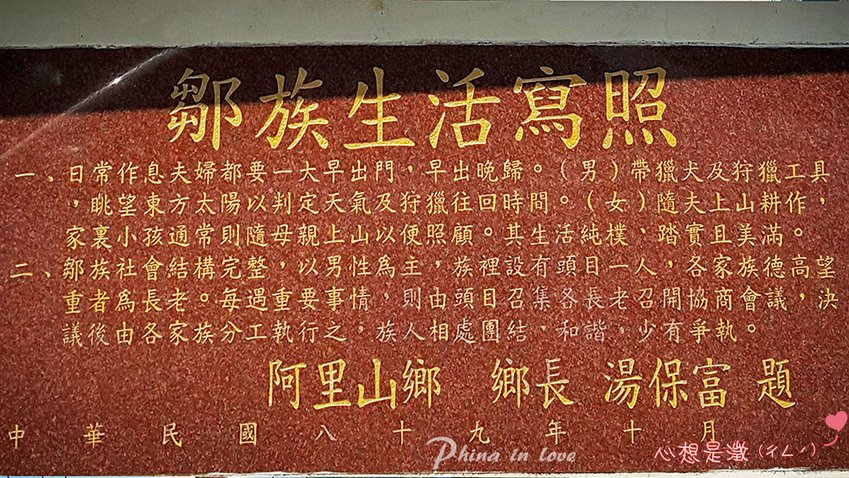 鄒族生活寫照
一、日常作息夫婦都要一大早出門，早出晚歸。（男）帶獵犬及狩獵工具
，眺望東方太陽以判定天氣及狩獵往回時間。（女）隨夫上山耕作，
家裏小孩通常則隨母親上山以便照顧。其生活純樸，踏實且美滿。
二、鄒族社會結構完整，以男性為主，族裡設有頭目一人，各家族德高望
重者為長老。每遇重要事情，則由頭目召集各長老召開協商會議，決
議後由各家族分工執行之，族人相處團結，和諧，少有爭執。
阿里山鄉 鄉長 湯保富 題
中華民國八十九年十月
Phina in love
心想是澂(ㄔㄥˊ)